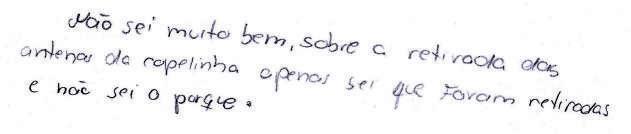 Não sei muito bem, sobre a retirada das
antenas da capelinha apenas sei que Foram retiradas
e não sei o porque.